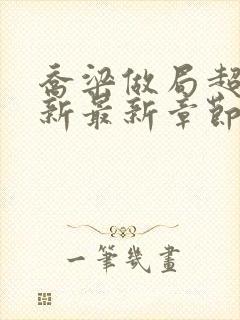 喬梁做局超
新最新章節
一筆幾畫